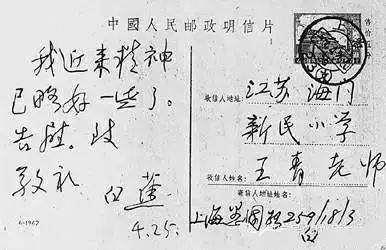 中國人民邮政明信片
我近来精神
已略好一些了。
告慰。此
敬礼
白蕉
4.25.
收信人地址:
江苏 海门
新民小学
收信人姓名:
王青老师
寄信人地址姓名:
上海
259/18/3
白